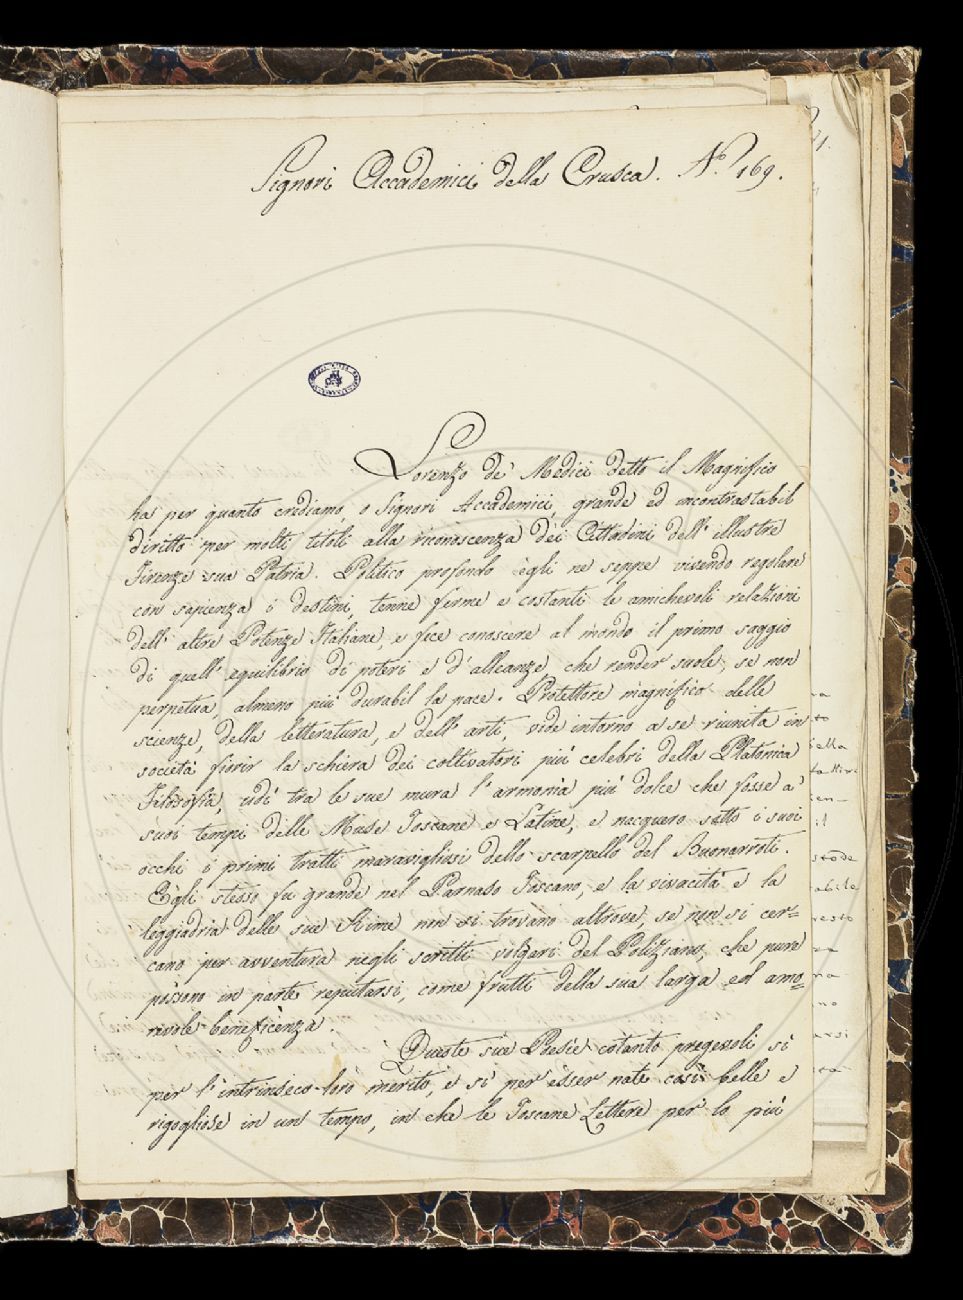 Signori Accademici della Crusca. N.° 169.
Lorenzo de' Medici detto il Magnifico
ha per quanto crediamo, o Signori Accademici, grande ed incontrastabil
diritto per molti titoli alla riconoscenza dei Cittadini dell'illustre
Firenze sua Patria. Politico profondo egli ne seppe vivendo regolare
con sapienza i destini, tenne ferme e costanti le amichevoli relazioni
dell'altre Potenze Italiane, e fece conoscere al mondo il primo saggio
di quell'equilibrio di poteri e d'alleanze che render suole, se non
perpetua, almeno più durabil la pace. Protettore magnifico delle
scienze, della letteratura, e dell'arti, vide intorno a se riunita in
società fiorir la schiera dei coltivatori più celebri della Platonica
Filosofia, udì tra le sue mura l'armonia più dolce che fosse a'
suoi tempi delle Muse Toscane e Latine, e nacquero sotto i suoi
occhi i primi tratti maravigliosi dello scarpello del Buonarroti.
Egli stesso fu grande nel Parnaso Toscano, e la vivacità e la
leggiadria delle sue Rime non si trovano altrove se non si cer=
cano per avventura negli scritti volgari del Poliziano, che pure
possono in parte reputarsi, come frutti della sua larga ed amo=
revole beneficenza.
Queste sue Poesie cotanto pregevoli sì
per l'intrinseco loro merito, e sì per esser nate così belle e
rigogliose in un tempo, in cui le Toscane Lettere per lo più